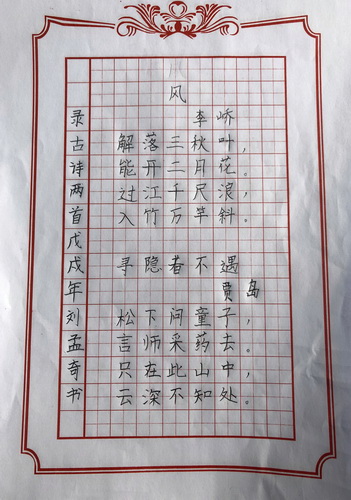 风
李峤
解落三秋叶，
能开二月花。
过江千尺浪，
入竹万竿斜。
寻隐者不遇
贾岛
松下问童子，
言师采药去。
只在此山中，
云深不知处。
录古诗两首戊戌年刘孟奇书